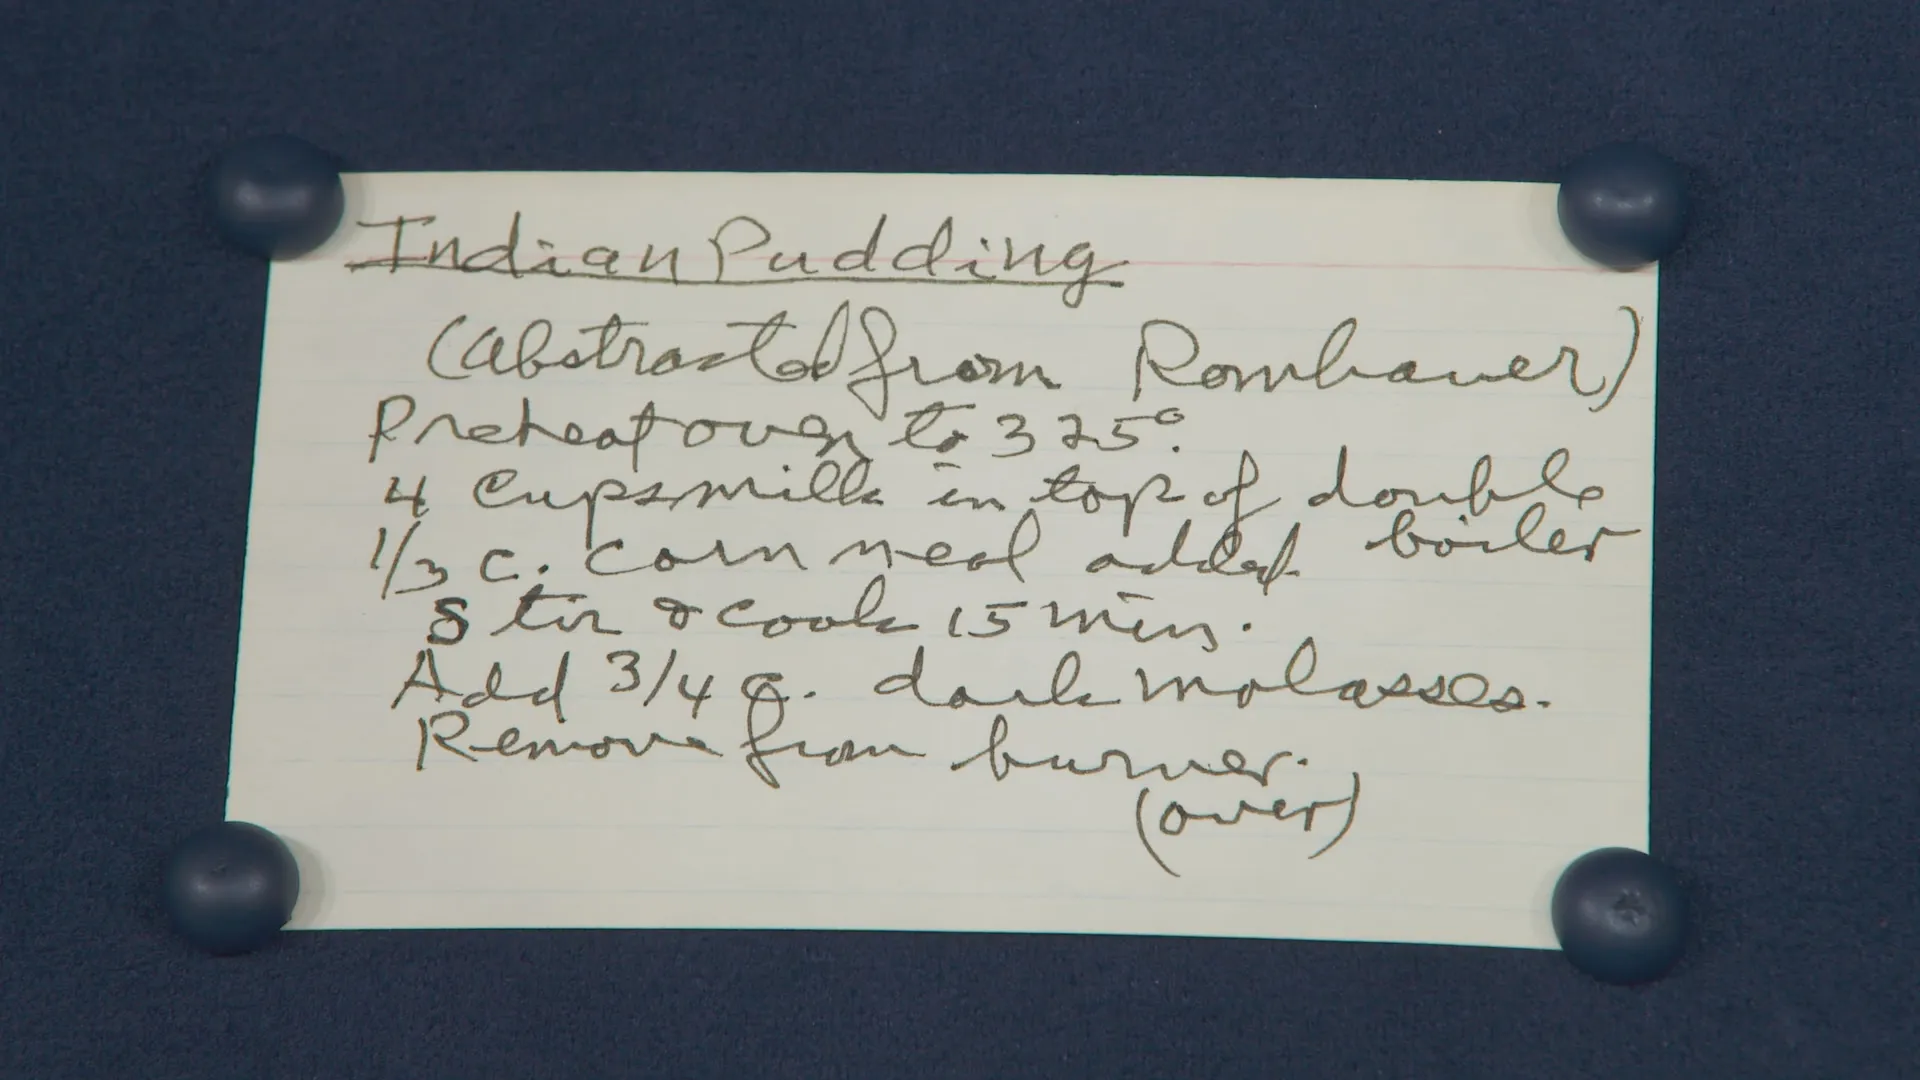 Indian Pudding
(Abstracted from Rombauer)
Preheat oven to 325°.
4 cups milk in top of double
boiler
1/3 c. corn meal added
Stir & cook 15 min.
Add 3/4 c. dark molasses.
Remove from burner.
(over)